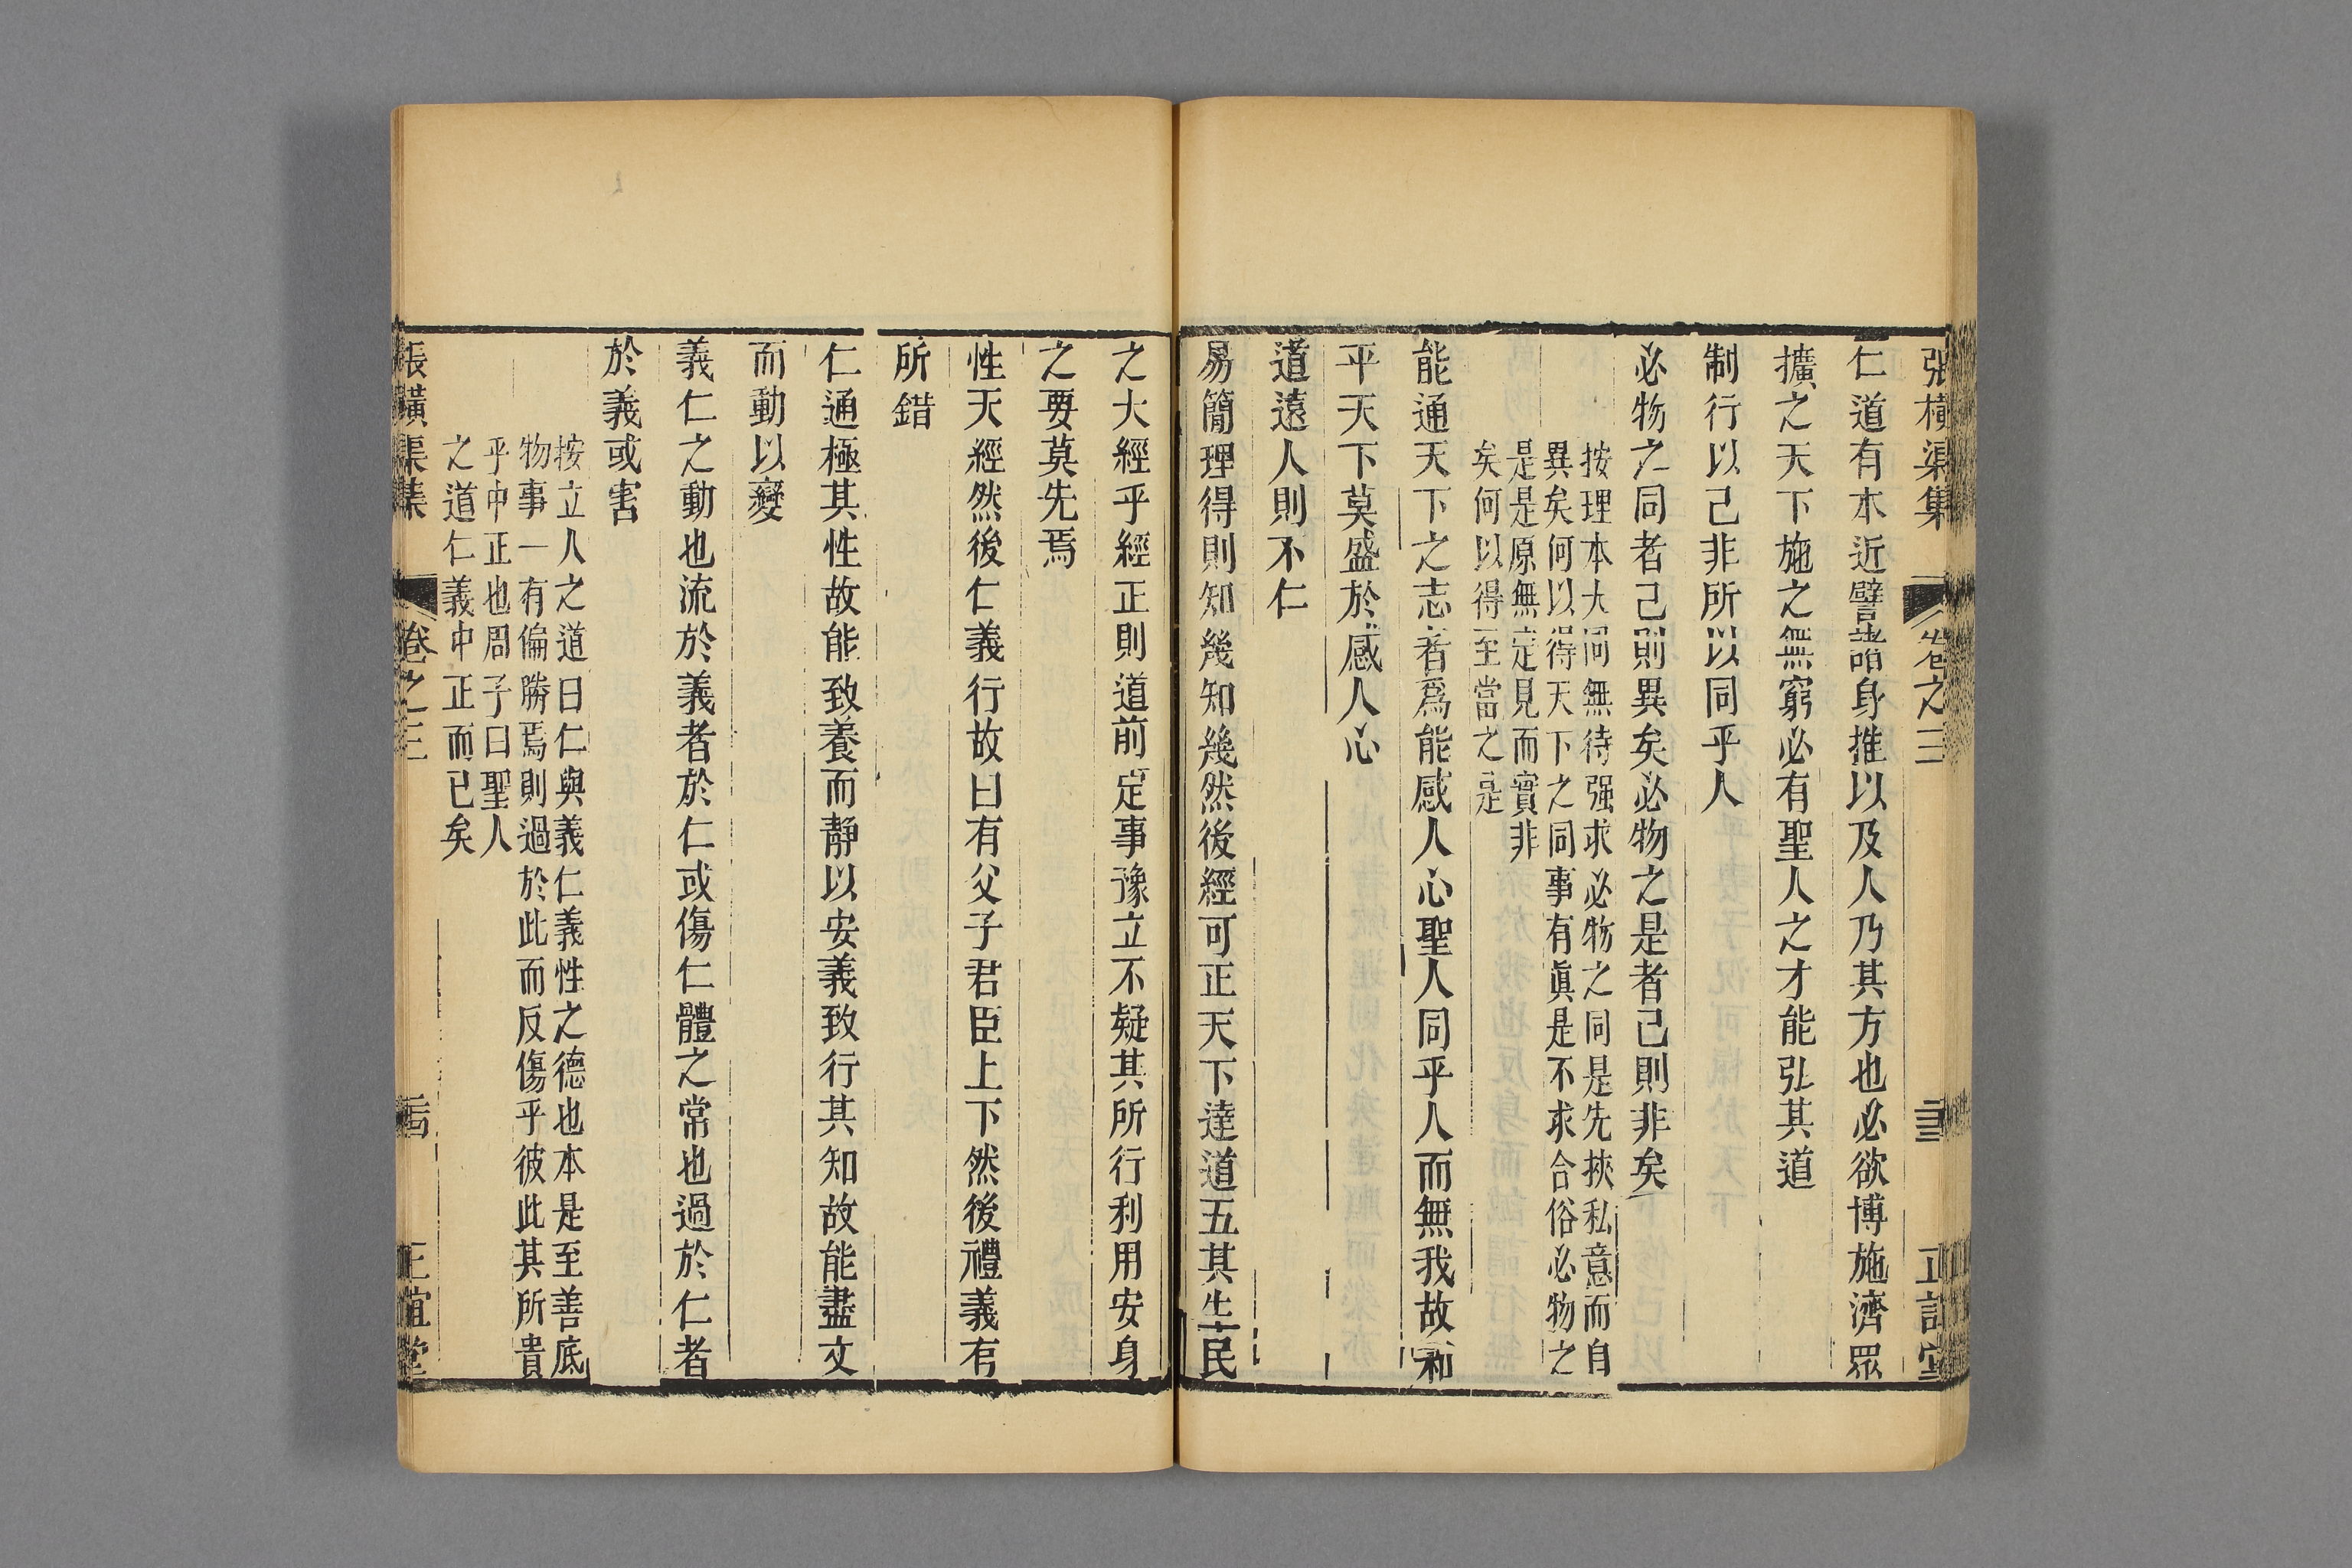 張橫渠集 卷之三 正誼堂
仁道有本近譬諸身推以及人乃其方也必欲博施濟眾
擴之天下施之無窮必有聖人之才能弘其道
制行以己非所以同乎人
必物之同者己則異矣必物之是者己則非矣
按理本大同無待强求必物之同是先挾私意而自
異矣何以得天下之同事有眞是不求合俗必物之
是是原無定見而實非
矣何以得至當之是
能通天下之志者爲能感人心聖人同乎人而無我故和
平天下莫盛於感人心
道遠人則不仁
易簡理得則知幾知幾然後經可正天下達道五其生民
之大經乎經正則道前定事豫立不疑其所行利用安身
之要莫先焉
性天經然後仁義行故曰有父子君臣上下然後禮義有
所錯
仁通極其性故能致養而靜以安義致行其知故能盡文
而動以變
義仁之動也流於義者於仁或傷仁體之常也過於仁者
於義或害
按立人之道曰仁與義仁義性之德也本是至善底
物事一有偏勝焉則過於此而反傷乎彼此其所貴
乎中正也周子曰聖人
之道仁義中正而已矣
張橫渠集 卷之三 正誼堂